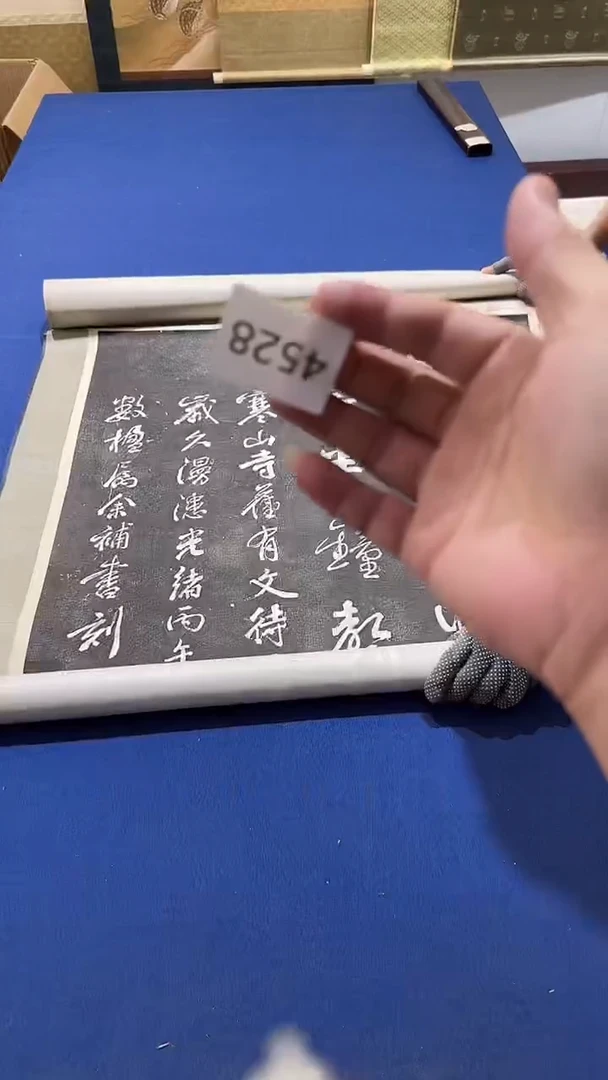 鐘聲
寒山寺舊有文待
歲久漫漶光緒丙午
數楹屬余補書刻
4528